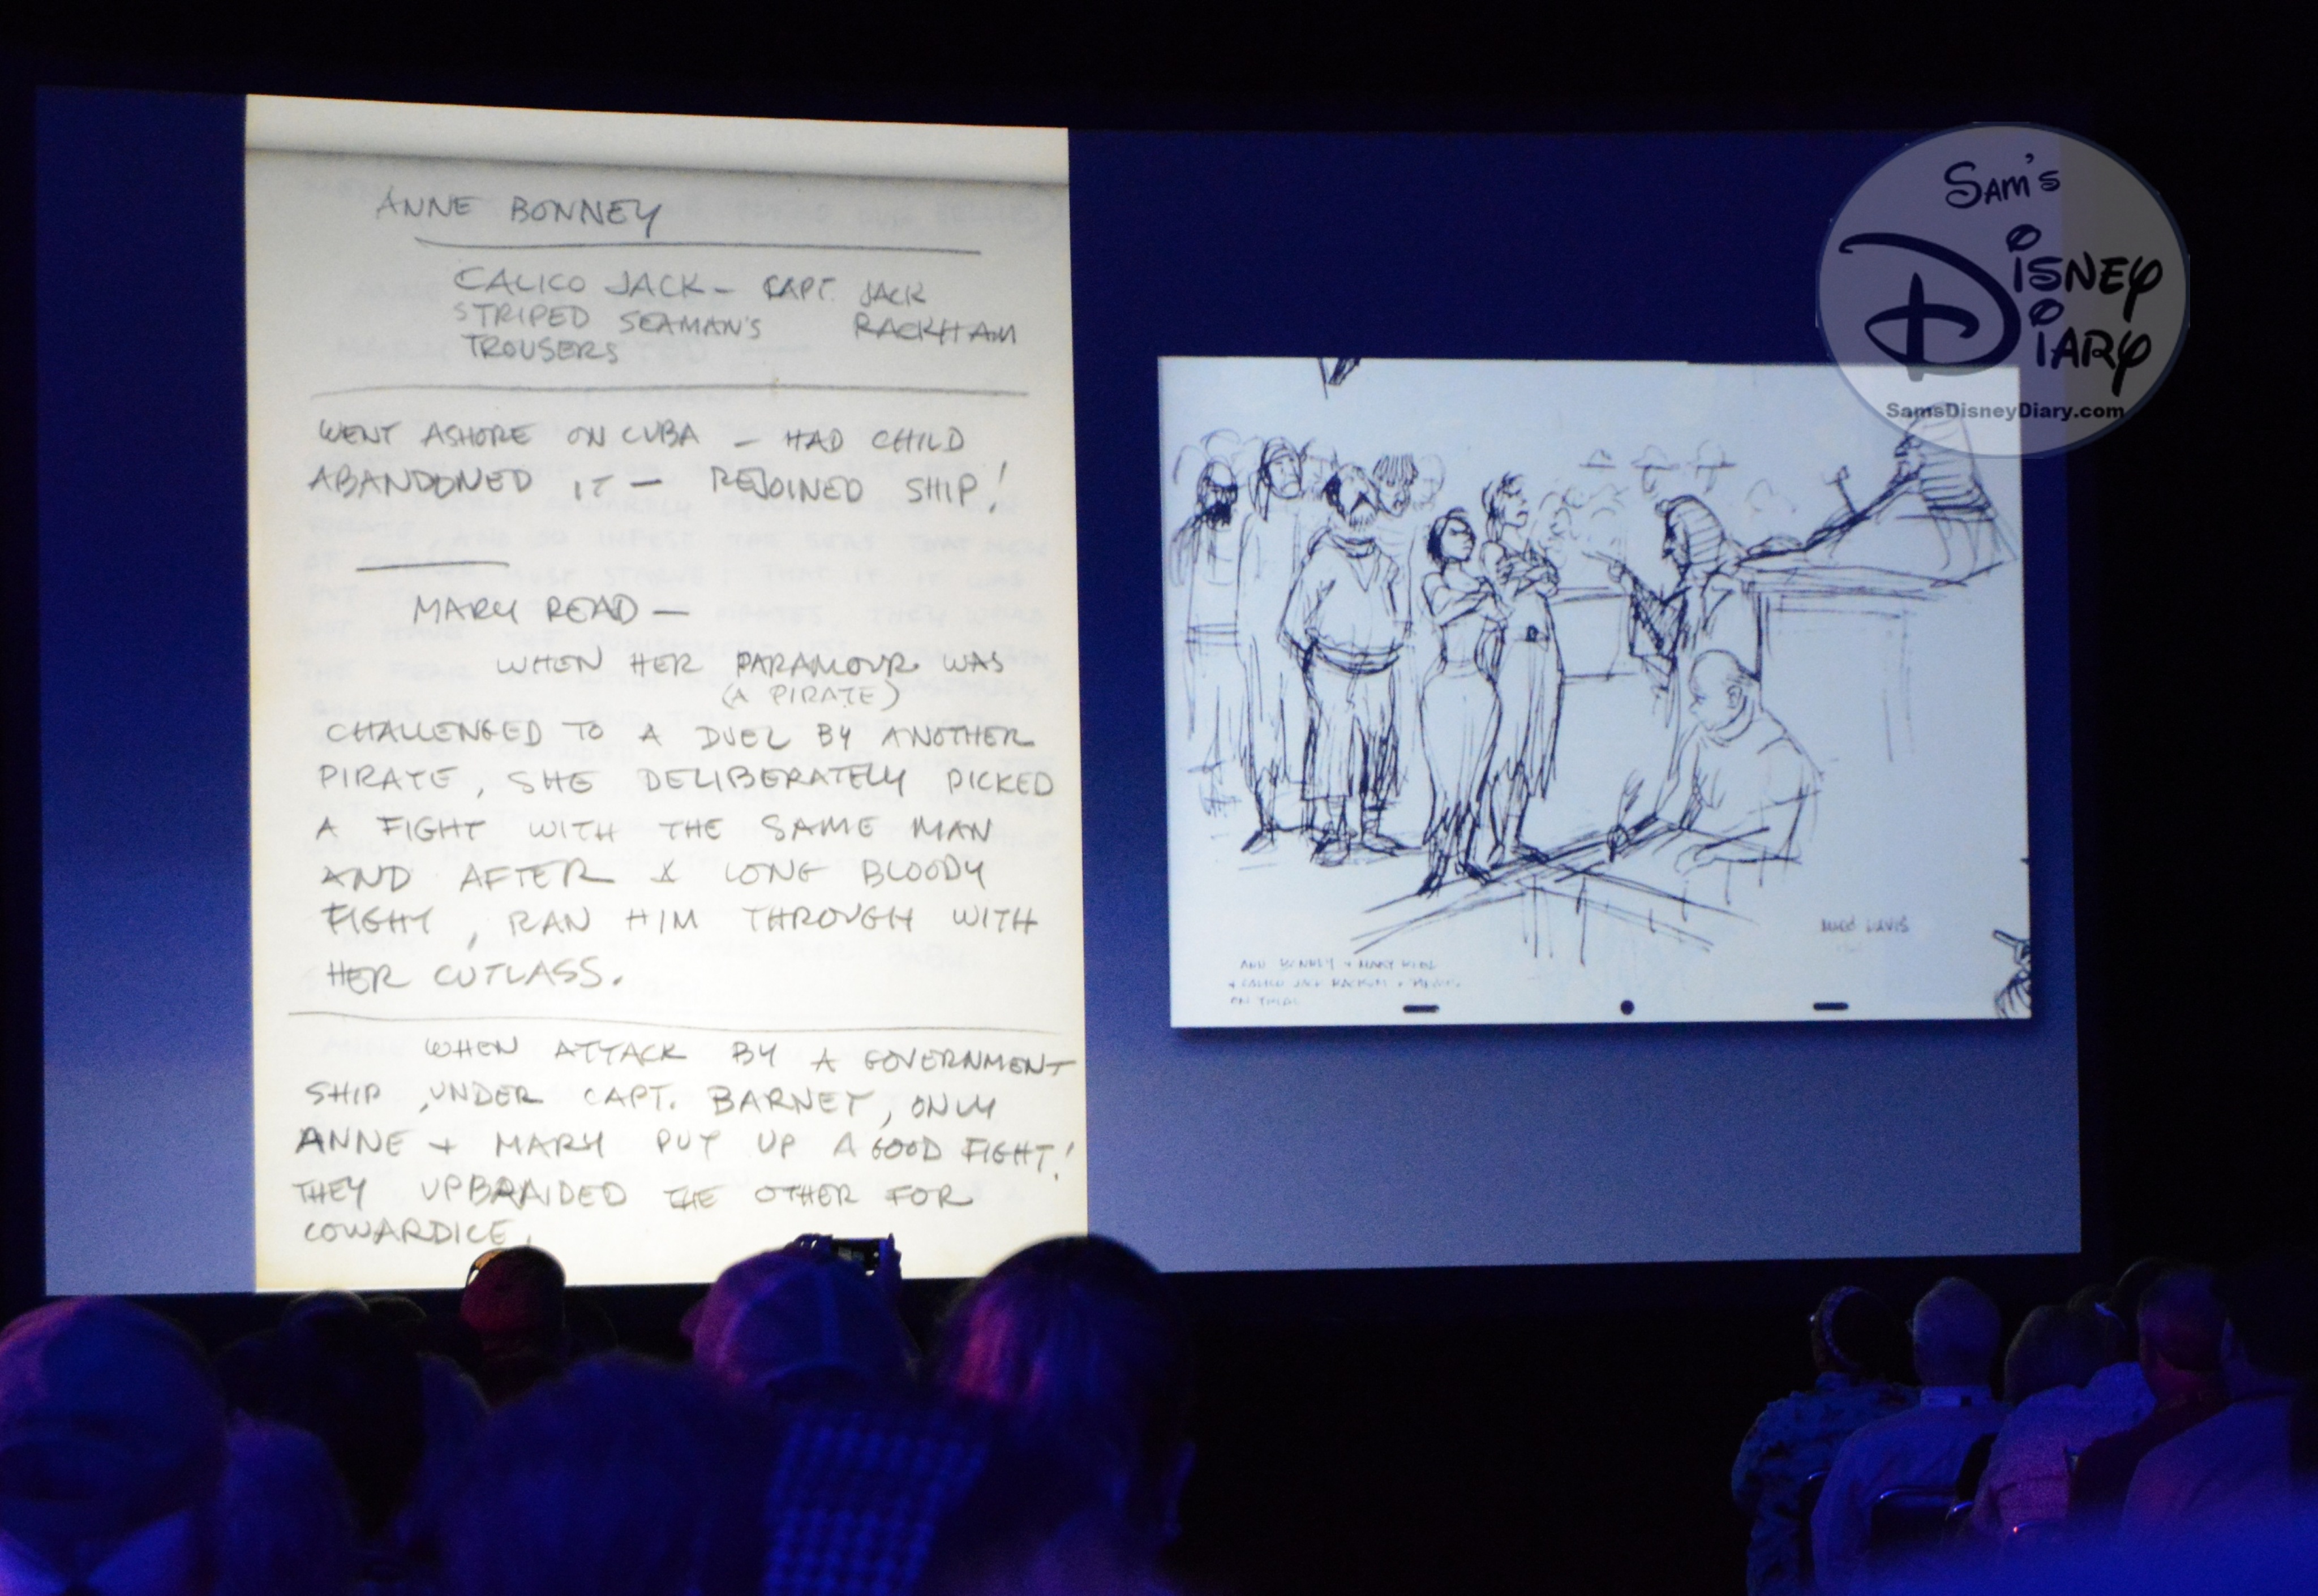 ANNE BONNEY
CALICO JACK - CAPT. JACK
STRIPED SEAMAN'S RACKHAM
TROUSERS
WENT ASHORE ON CUBA - HAD CHILD
ABANDONED IT - REJOINED SHIP!
MARY READ -
WHEN HER PARAMOUR WAS
(A PIRATE)
CHALLENGED TO A DUEL BY ANOTHER
PIRATE, SHE DELIBERATELY PICKED
A FIGHT WITH THE SAME MAN
AND AFTER A LONG BLOODY
FIGHT, RAN HIM THROUGH WITH
HER CUTLASS.
WHEN ATTACK BY A GOVERNMENT
SHIP, UNDER CAPT. BARNET, ONLY
ANNE + MARY PUT UP A GOOD FIGHT!
THEY UPBRAIDED THE OTHER FOR
COWARDICE.
Sam's
Disney
Diary
SamsDisneyDiary.com
DAVIS
ANN BONNEY + MARY READ
+ CALICO JACK
ON TRIAL